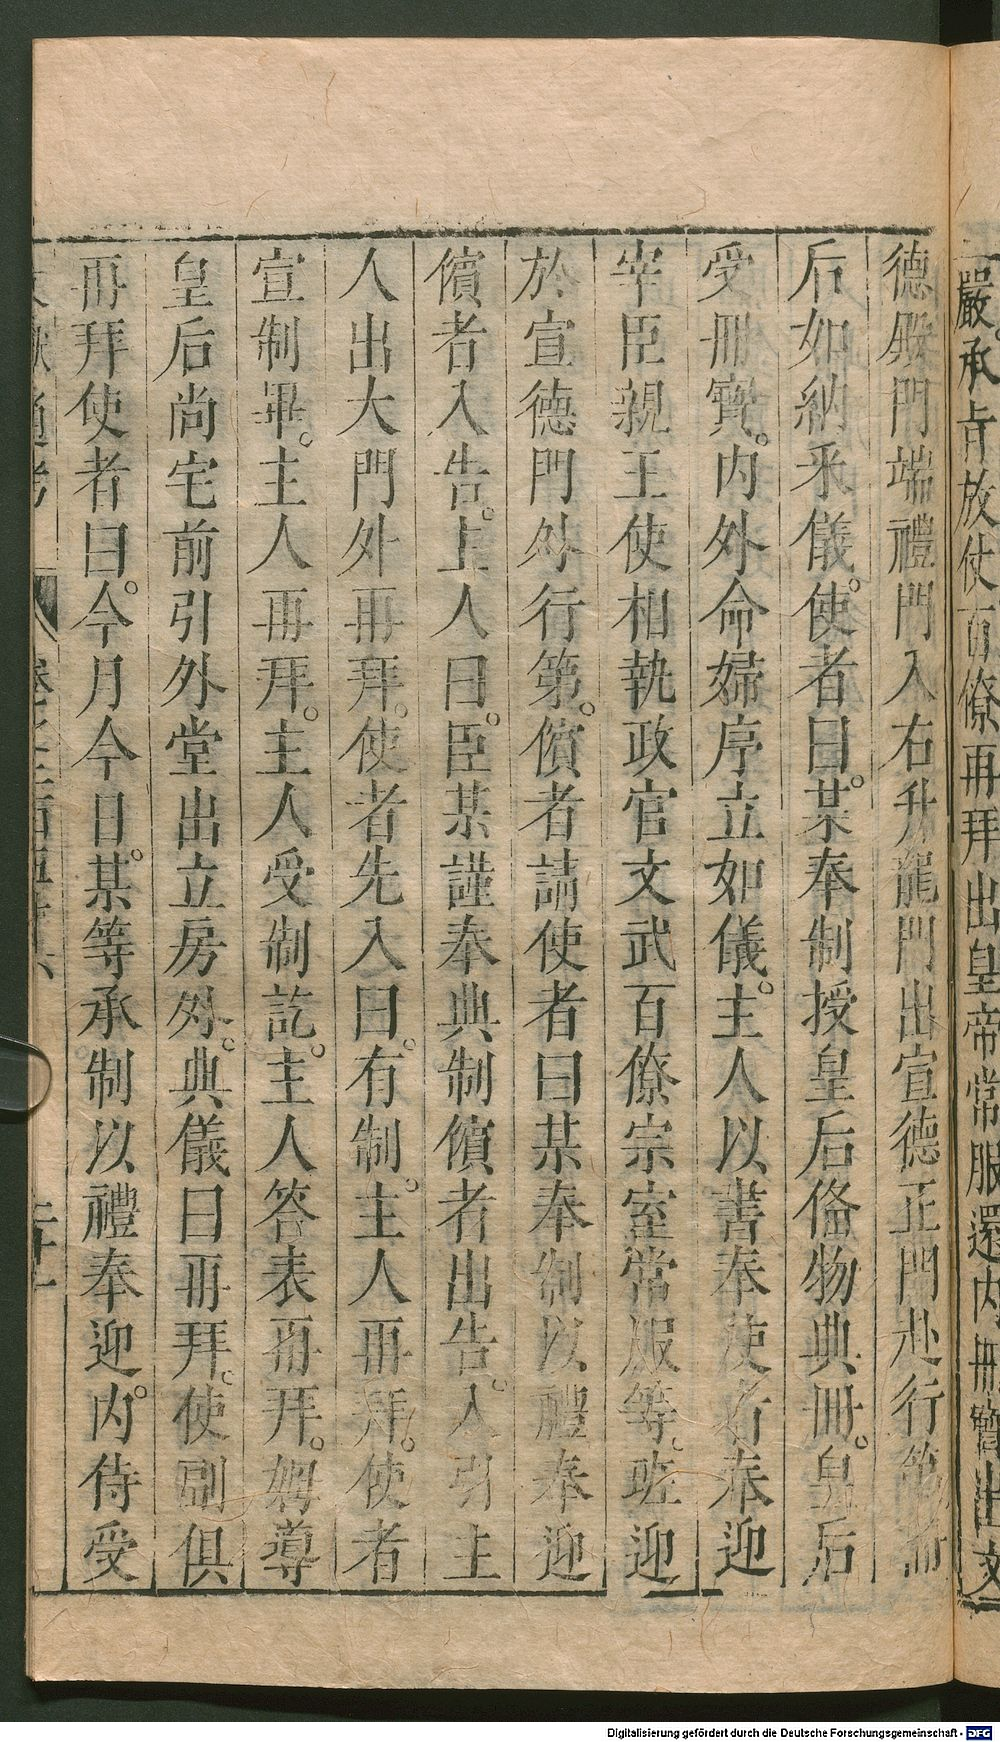 嚴承旨放仗百僚再拜出皇帝常服還内冊寶出文
德殿門端禮門入右升龍門出宣德正門赴行第
后如納采儀使者曰某奉制授皇后俻物典冊皇后
受冊寳内外命婦序立如儀主人以書奉使者奉迎
宰臣親王使相執政官文武百僚宗室常服等班迎
於宣德門外行第儐者請使者曰某奉制以禮奉迎
儐者入告主人曰臣某謹奉典制儐者出告入引主
人出大門外再拜使者先入曰有制主人再拜使者
宣制畢主人再拜主人受制訖主人答表再拜姆導
皇后尚宅前引外堂出立房外典儀曰再拜使副俱
再拜使者曰今月今日某等承制以禮奉迎内侍受
文獻通考
卷二百五十六
二十一
Digitalisierung gefördert durch die Deutsche Forschungsgemeinschaft - DFG